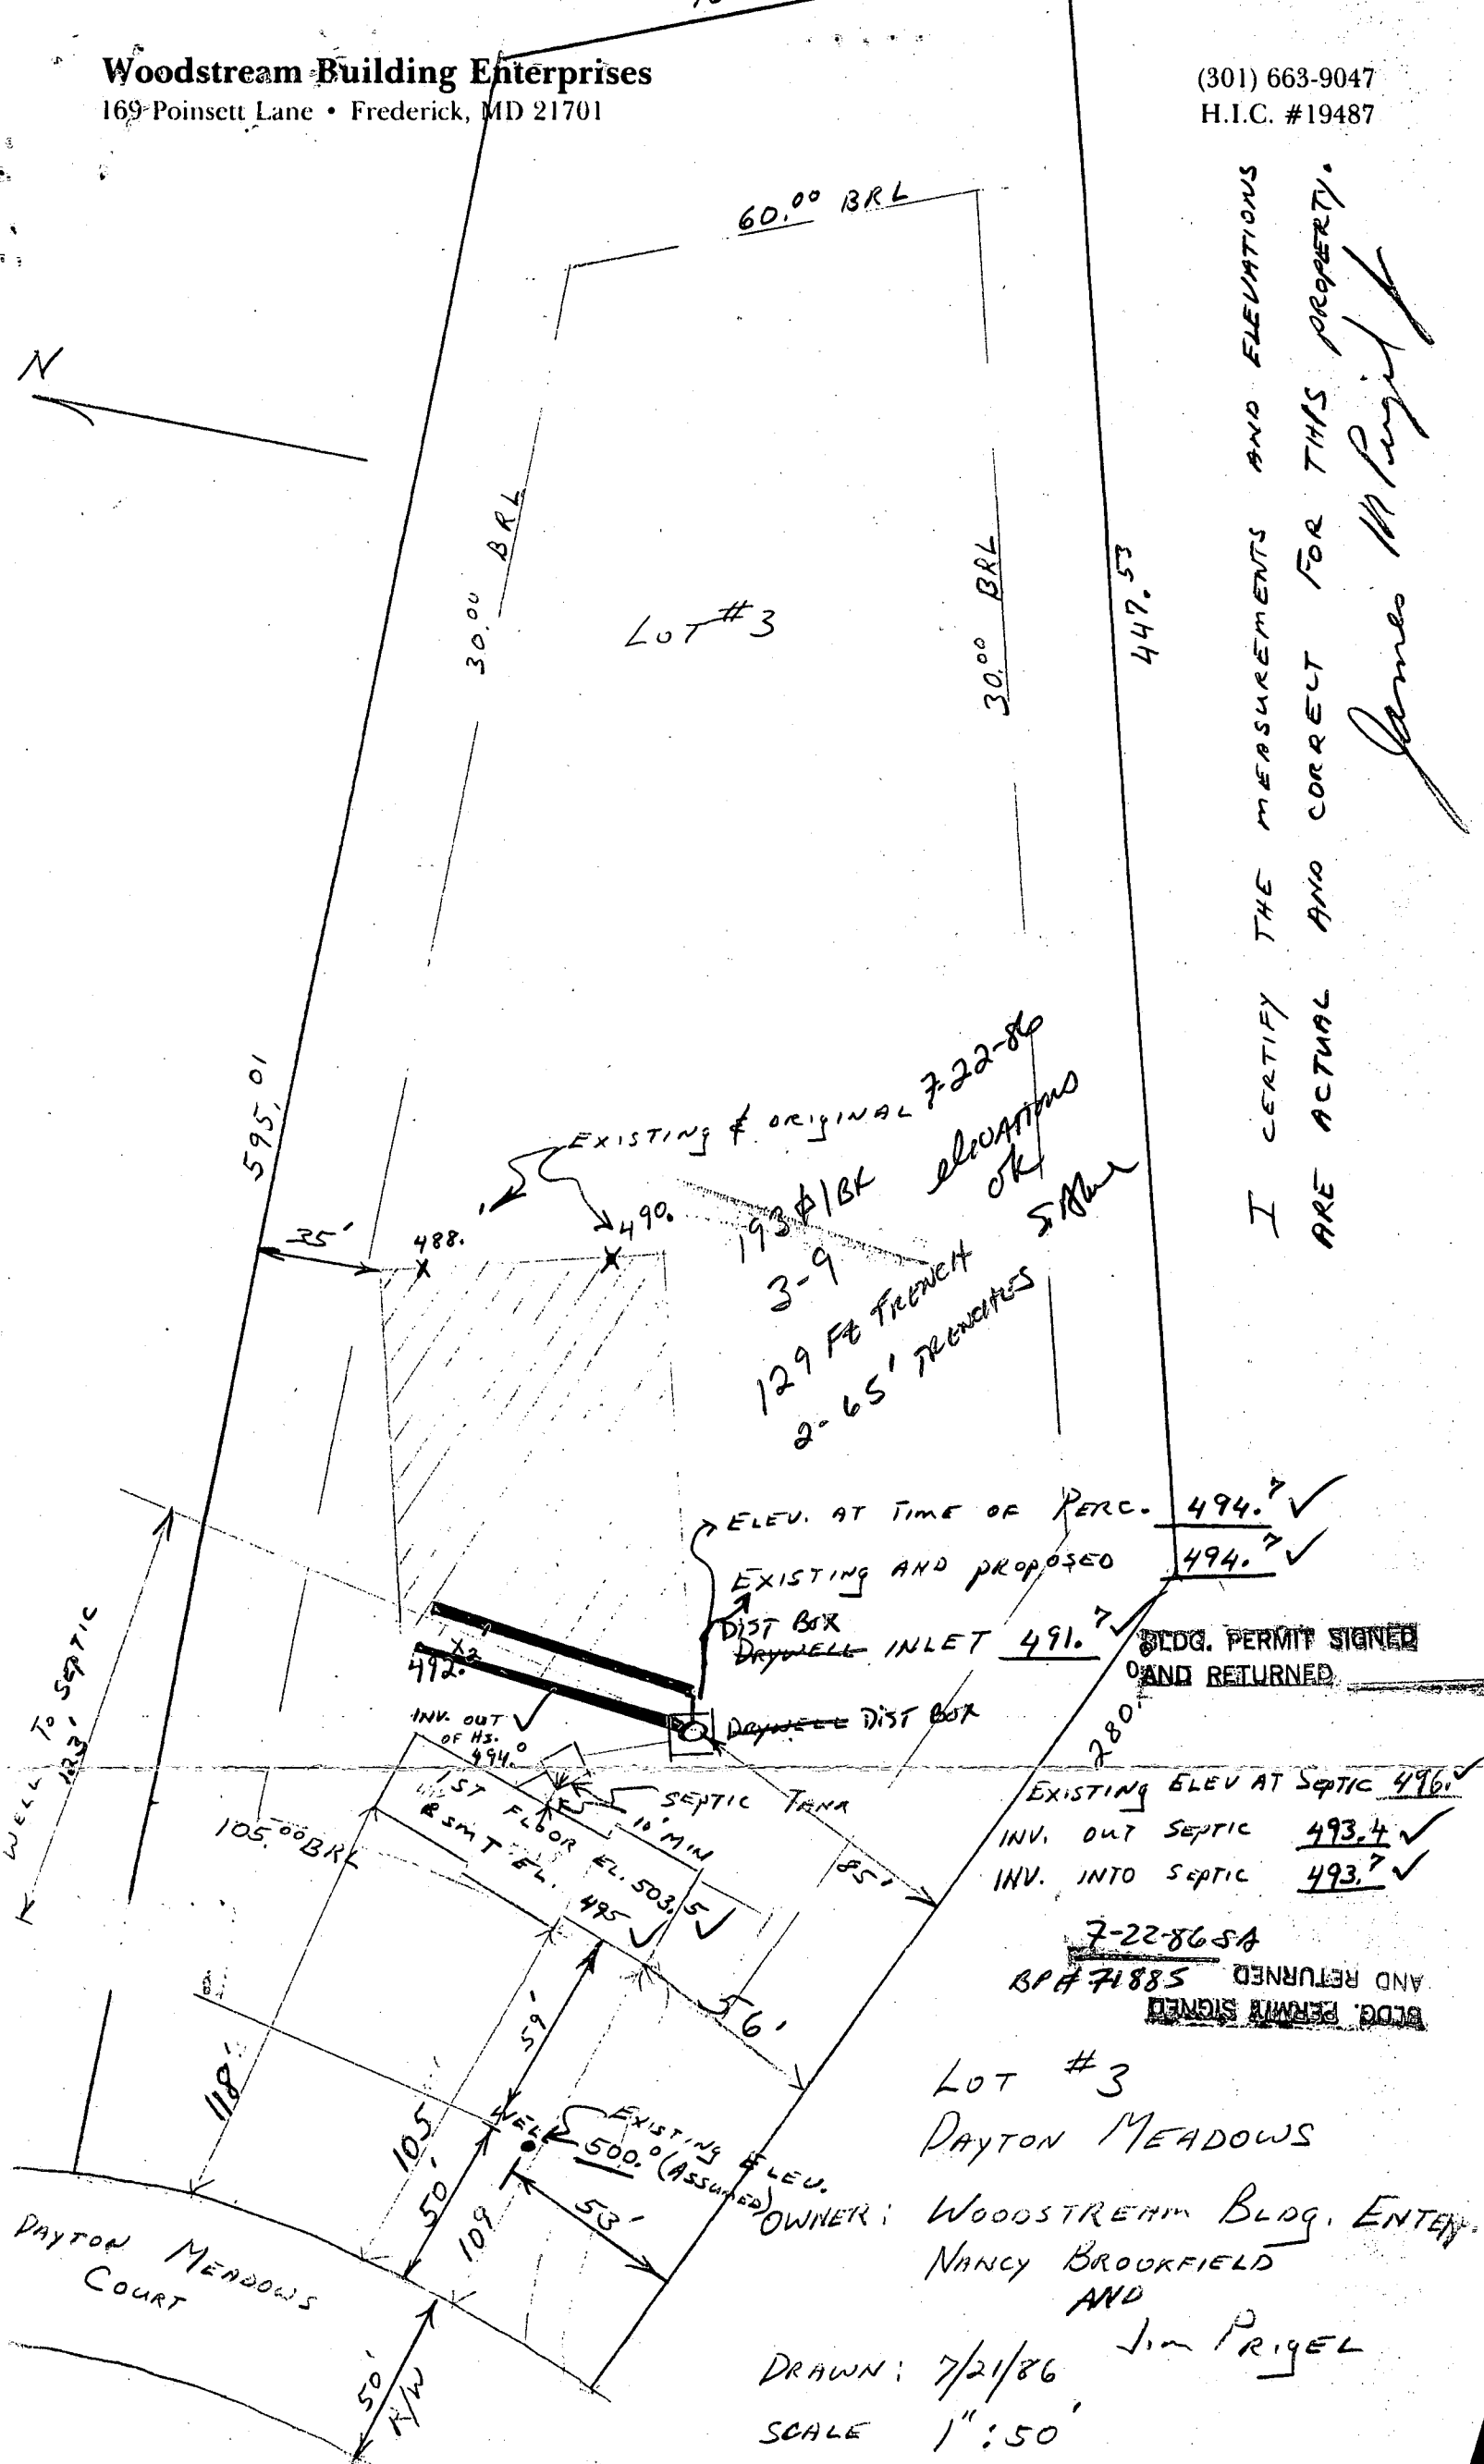 Woodstream Building Enterprises
169 Poinsett Lane • Frederick, MD 21701
(301) 663-9047
H.I.C. #19487
60.00 BRL
N
30.00 BRL
LOT #3
30.00 BRL
447.53
I CERTIFY THE MEASUREMENTS AND ELEVATIONS
ARE ACTUAL AND CORRECT FOR THIS PROPERTY.
595.01
EXISTING & ORIGINAL
7-22-86
elevations
OK
35'
488.
490.
3-9
129 Ft TRENCH
2-65' TRENCHES
ELEV. AT TIME OF PERC. 494.7 ✓
EXISTING AND PROPOSED 494.7 ✓
DIST BOX
DRYWELL INLET 491.7 ✓
BLDG. PERMIT SIGNED
AND RETURNED
492.2
DRYWELL DIST BOX
INV. OUT ✓
OF HS.
494.0
280.0
WELL TO SEPTIC
123'
SEPTIC TANK
10' MIN
1ST FLOOR EL. 503.5 ✓
BSMT EL. 495 ✓
105.00 BRL
85'
EXISTING ELEV AT SEPTIC 496. ✓
INV. OUT SEPTIC 493.4 ✓
INV. INTO SEPTIC 493.7 ✓
7-22-86 SA
BP# 71885
AND RETURNED
BLDG. PERMIT SIGNED
56'
59'
118'
105'
WELL
EXISTING ELEV.
500.0 (ASSUMED)
50'
109
53'
DAYTON MEADOWS
COURT
50'
R/W
LOT #3
DAYTON MEADOWS
OWNER: WOODSTREAM BLDG. ENTER.
NANCY BROOKFIELD
AND
Jim PRIGEL
DRAWN: 7/21/86
SCALE 1":50'